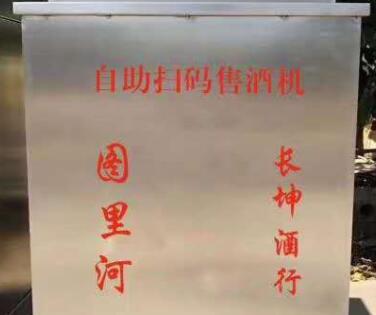 自助扫码售酒机
图里河
长坤酒行